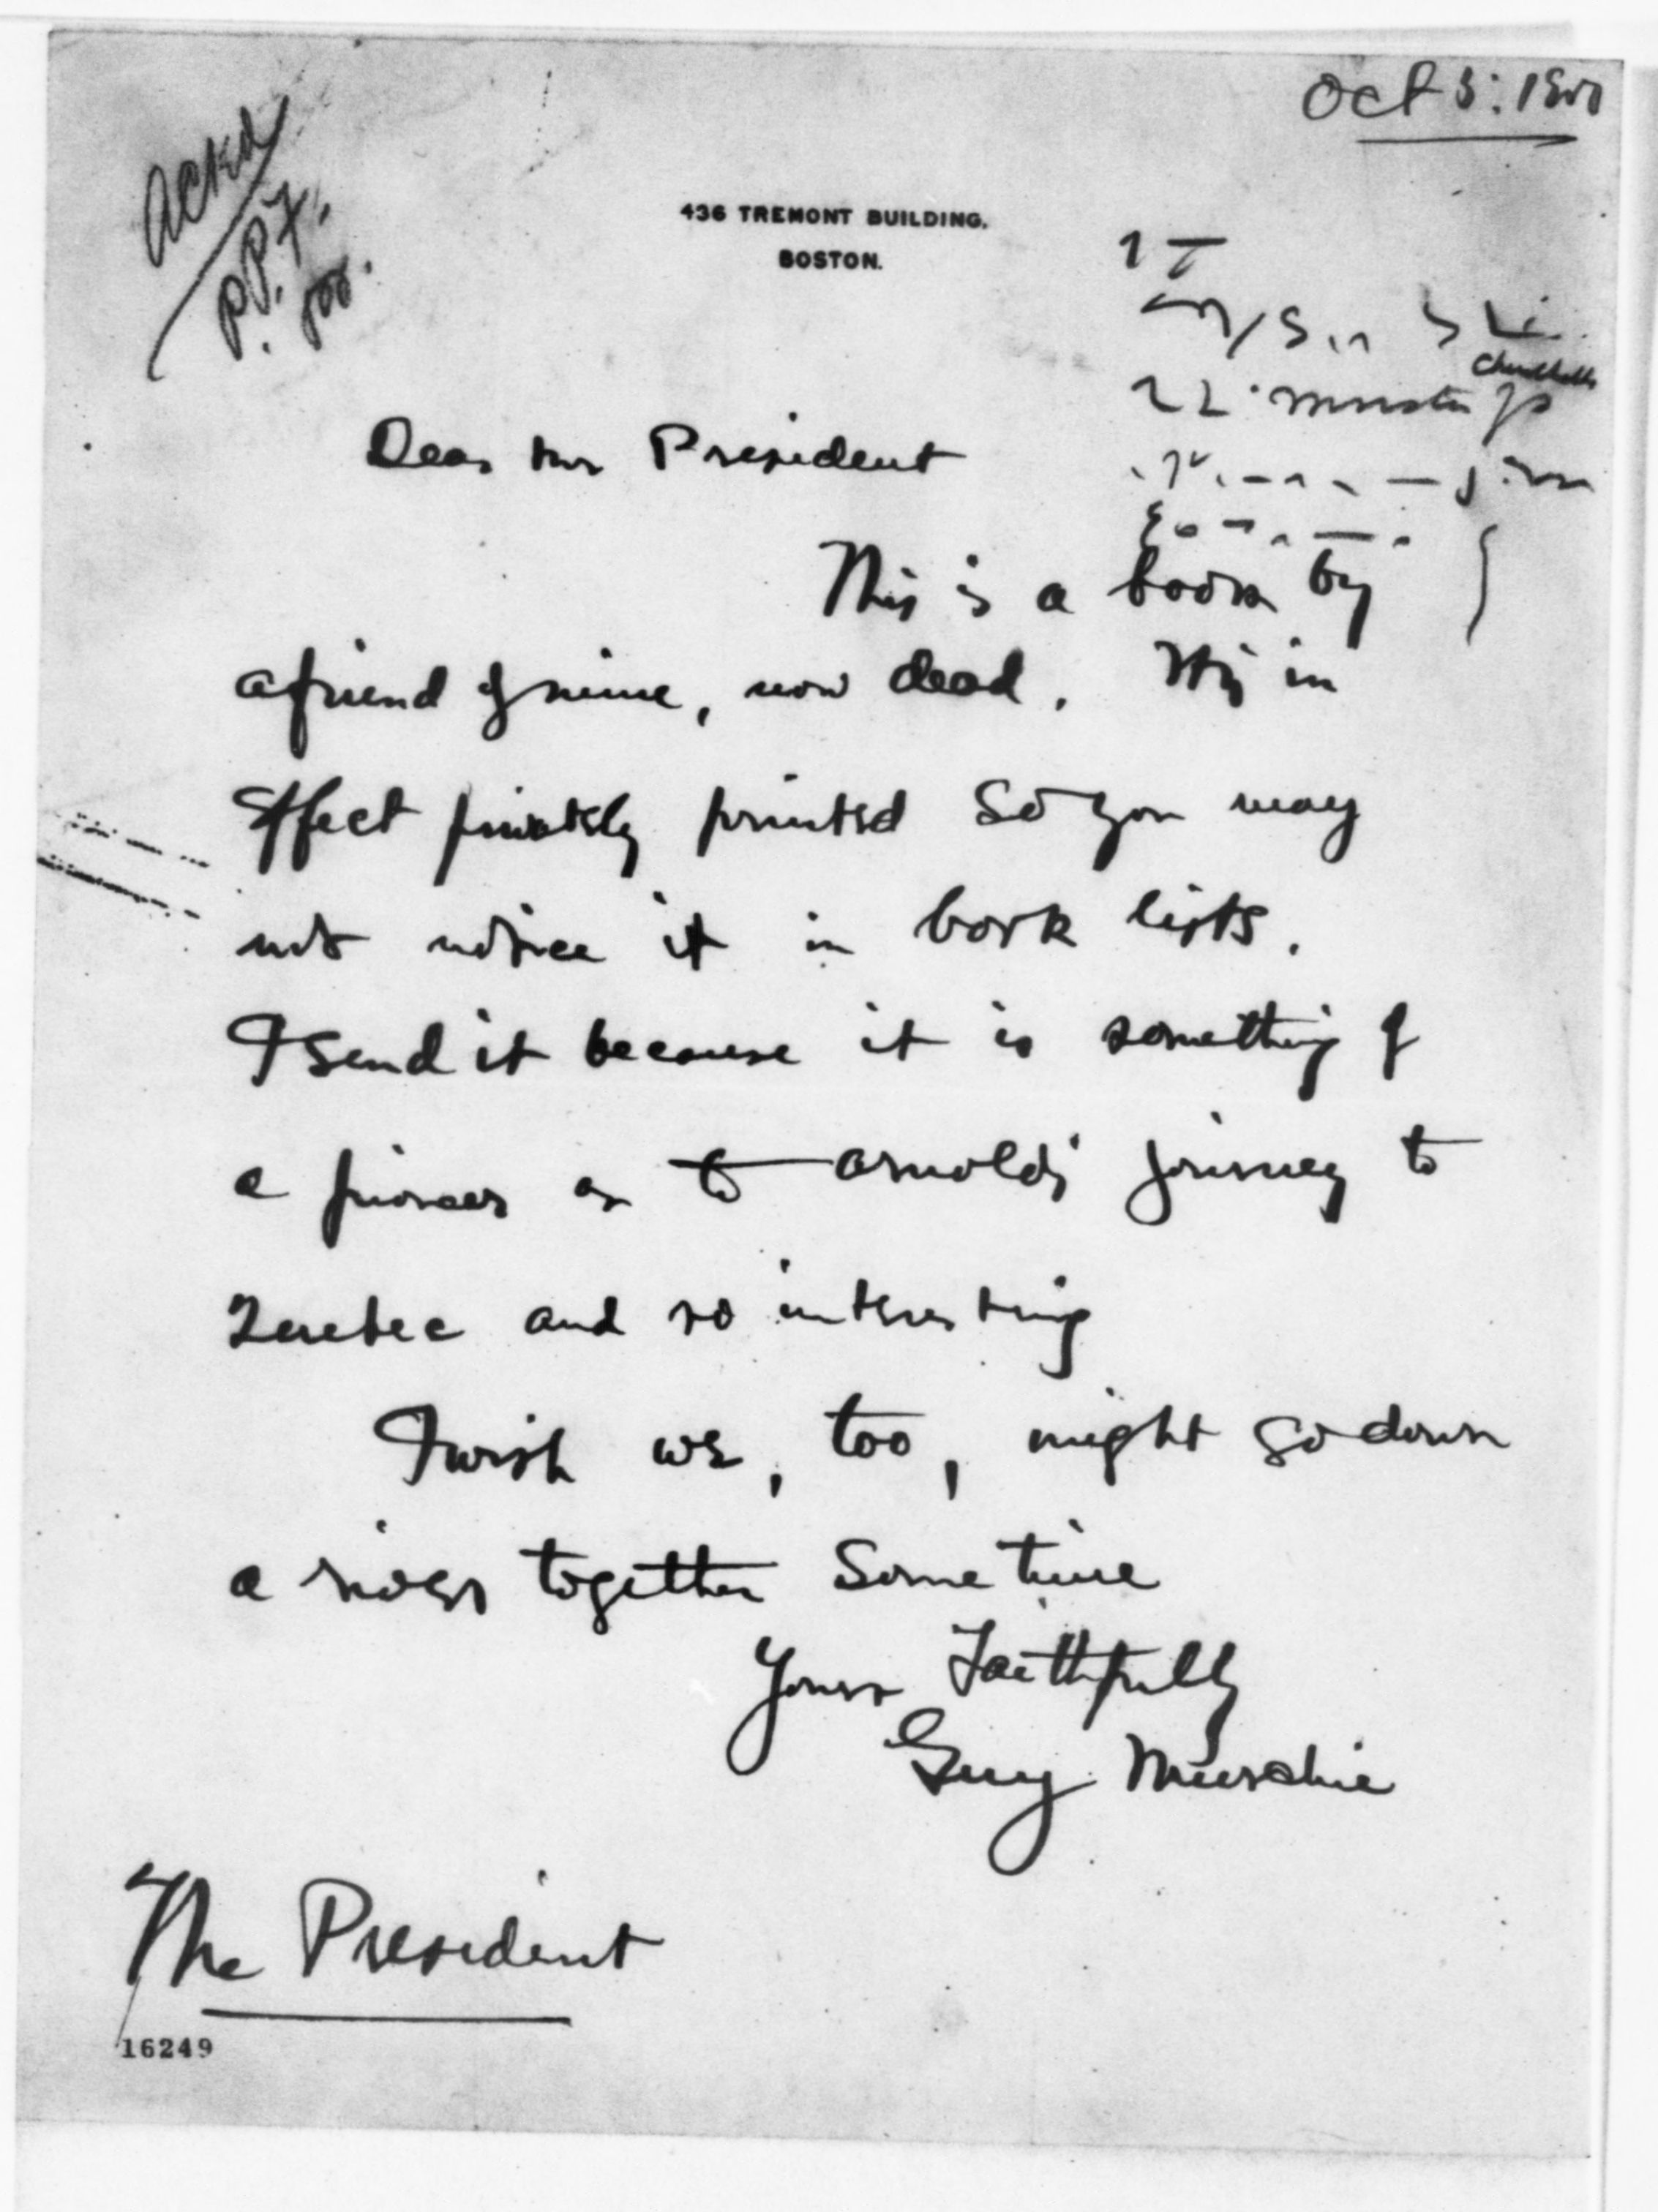 Oct 3:
Acked
P.P.F.
436 TREMONT BUILDING.
BOSTON.
Dear Mr President
This is a book by
a friend of mine, now dead. It is in
effect privately printed so you may
not notice it in book lists.
I send it because it is something of
a pioneer as to Arnold's journey to
Quebec and so interesting
I wish we, too, might go down
a river together sometime
Yours Faithfully
Guy Murchie
The President
16249